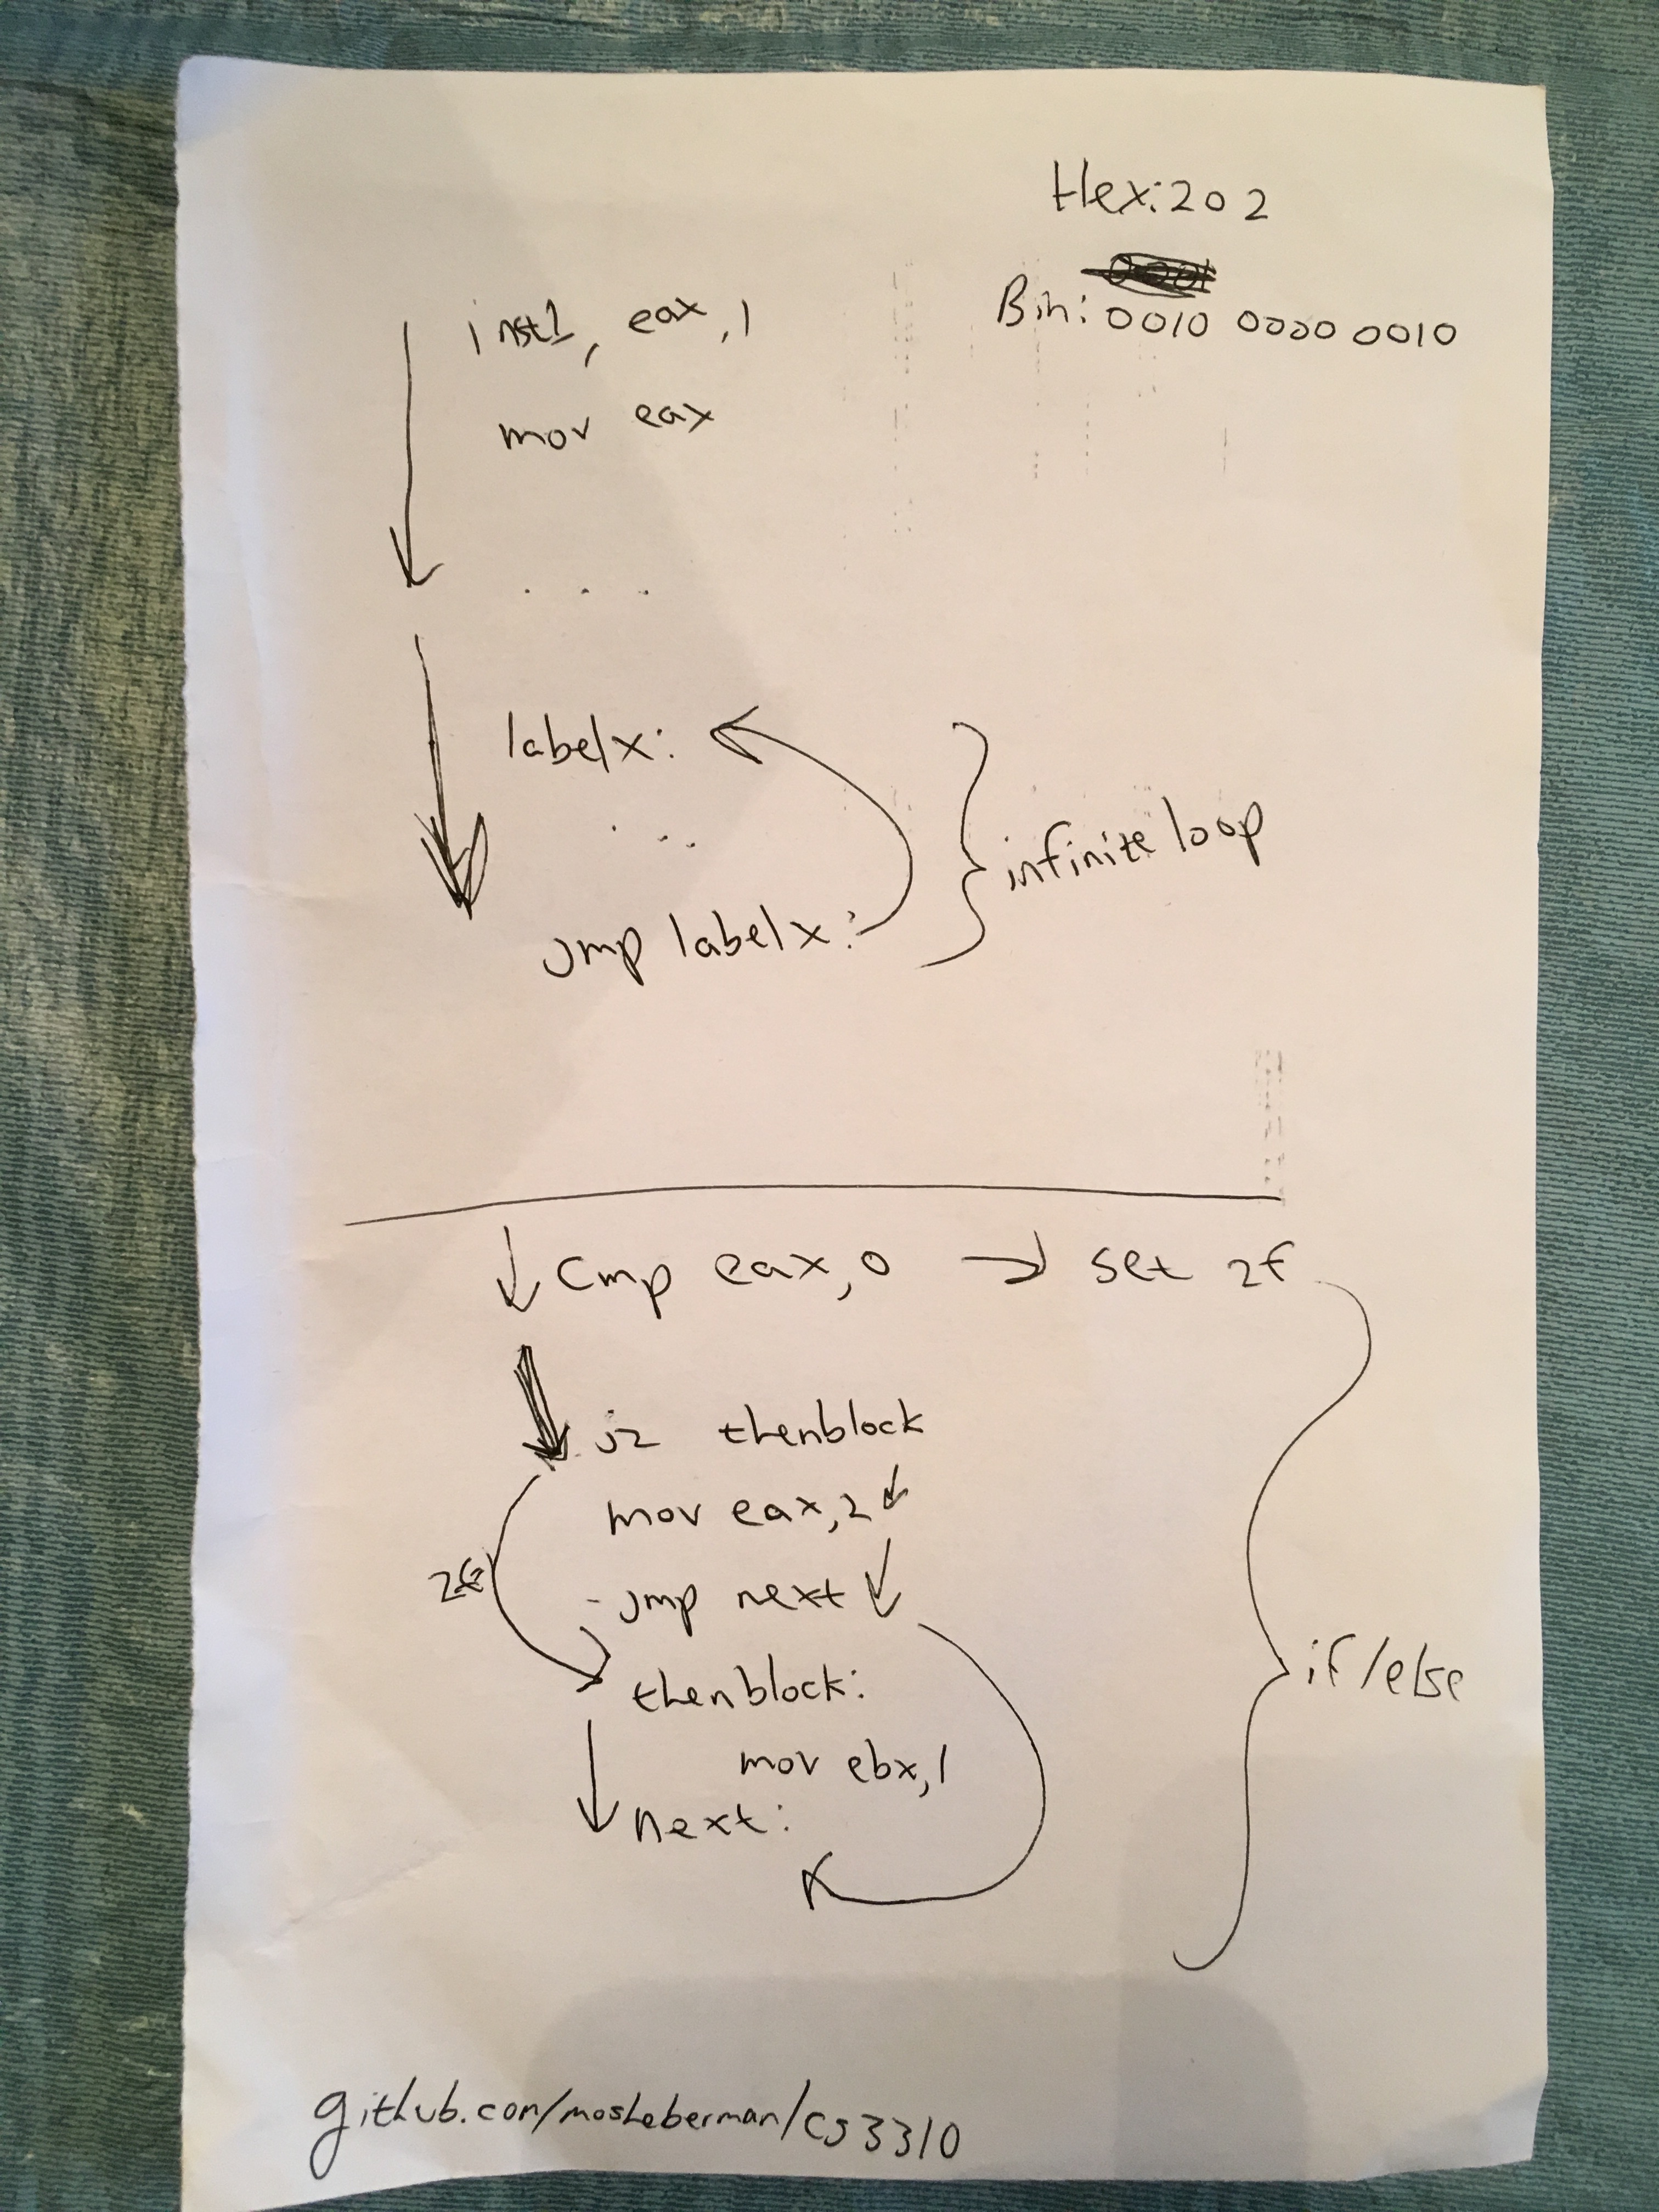 Hex: 202
Bin: 0010 0000 0010
inst1, eax, 1
mov eax
....
labelx:
...
jmp labelx:
infinite loop
cmp eax, 0 → set zf
jz thenblock
mov eax, 2
zf
jmp next
thenblock:
mov ebx, 1
next:
if/else
github.com/mosheberman/cs3310